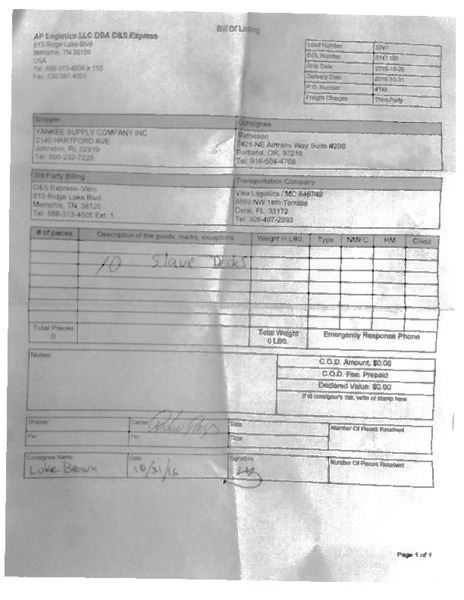 Bill Of Lading
AP Logistics LLC DBA D&S Express
813 Ridge Lake Blvd
Memphis, TN 38120
USA
Tel: 888-313-4505 x 110
Load Number 3747
BOL Number
Ship Date
Delivery Date 2016-10-31
P.O. Number
Freight Charges Third Party
Shipper
Consignee
YANKEE SUPPLY COMPANY INC
2140 HARTFORD AVE
Johnston, RI, 02919
Matheson
NE Airtrans Way Suite #200
Portland, OR, 97218
Tel: 916-504-4768
3rd Party Billing
Transportation Company
D&S Express- Vero
813 Ridge Lake Blvd
Memphis, TN, 38120
Tel: 888-313-4505 Ext: 1
Vika Logistics / MC
NW 18th Terrace
Doral, FL, 33172
# of pieces Description of the goods, marks, exceptions Weight in LBS. Type NMFC HM Class
10 Slave Decks
Total Pieces
0
Total Weight
0 LBS.
Emergency Response Phone
Notes:
C.O.D. Amount: $0.00
C.O.D. Fee: Prepaid
Declared Value: $0.00
If at consignor's risk, write or stamp here
Shipper Carrier Date Number Of Pieces Received
Per Per Time
Consignee Name Date Signature Number Of Pieces Received
Luke Brown 10/31/16
Page 1 of 1